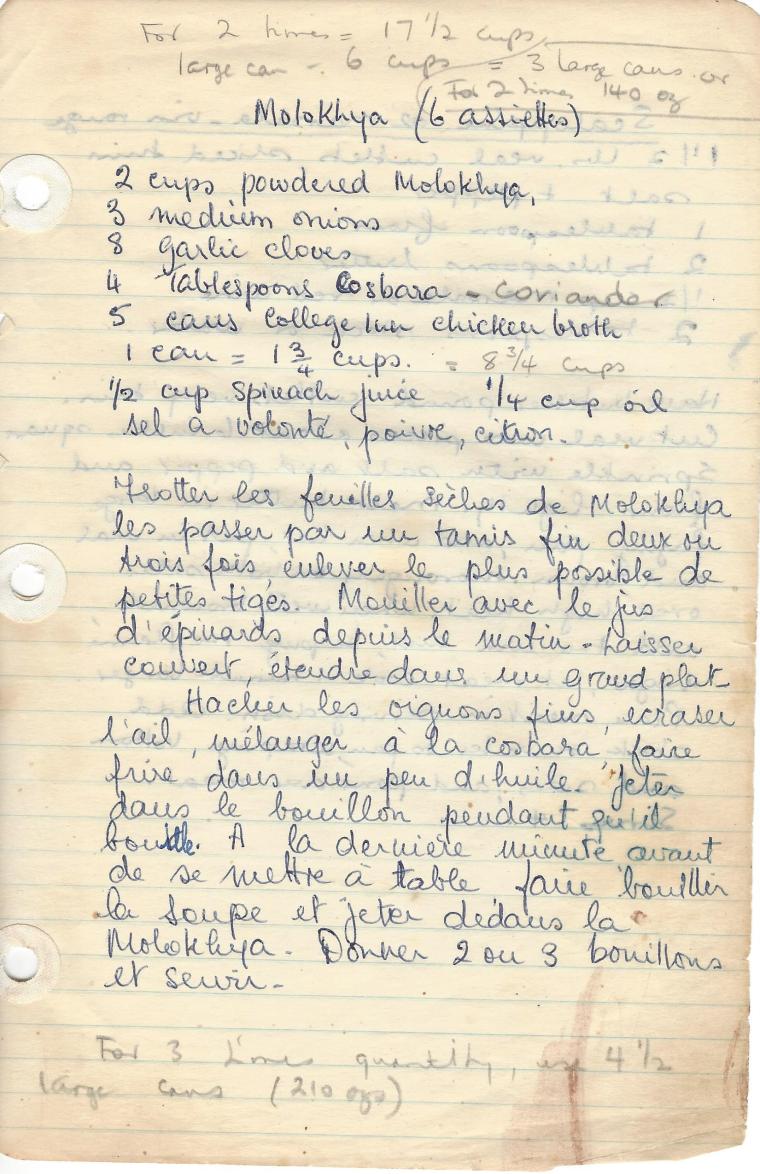 For 2 times = 17 1/2 cups
large can - 6 cups = 3 large cans or
For 2 times 140 oz
Molokhya (6 assiettes)
2 cups powdered Molokhya,
3 medium onions
8 garlic cloves
4 Tablespoons Cosbara - coriander
5 cans College Inn chicken broth
1 can = 1 3/4 cups. = 8 3/4 cups
1/2 cup Spinach juice 1/4 cup oil
sel a volonté, poivre, citron.
Frotter les feuilles sèches de Molokhya
les passer par un tamis fin deux ou
trois fois enlever le plus possible de
petites tiges. Mouiller avec le jus
d'épinards depuis le matin - Laisser
couvert, étendre dans un grand plat
Hacher les oignons fins, ecraser
l'ail, mélanger à la cosbara, faire
frire dans un peu d'huile. Jeter
dans le bouillon pendant qu'il
bouille. A la dernière minute avant
de se mettre à table faire bouillir
la soupe et jeter dedans la
Molokhya - Donner 2 ou 3 bouillons
et servir -
For 3 times quantity, use 4 1/2
large cans (210 ozs)